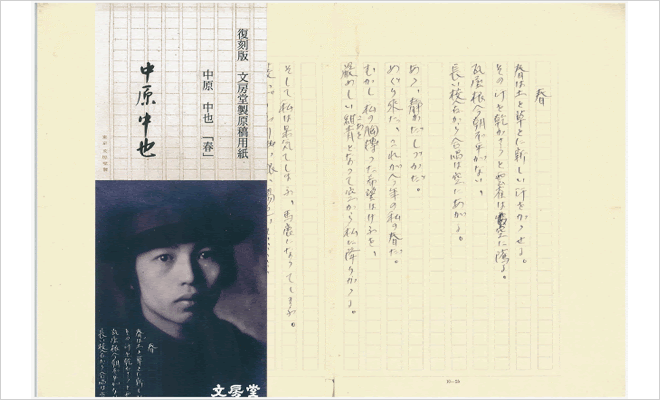 春
春は土と草とに新しい汗をかゝせる。
その汗を乾かさうと、雲雀は空に隲る。
瓦屋根今朝不平がない、
長い校舎から合唱は空にあがる。
あゝ、静かだしづかだ。
めぐり来た、これが今年の私の春だ。
むかし私の胸摶つた希望はけふを、
厳めしい紺青となつて空から私に降りかゝる。
そして私は呆気てしまふ、馬鹿になつてしまふ。
復刻版 文房堂製原稿用紙
中原 中也 「春」
中原中也
春
春は土と草とに新しい
その汗を乾かさうと
瓦屋根今朝不平がな
長い校舎から合唱は
文房堂